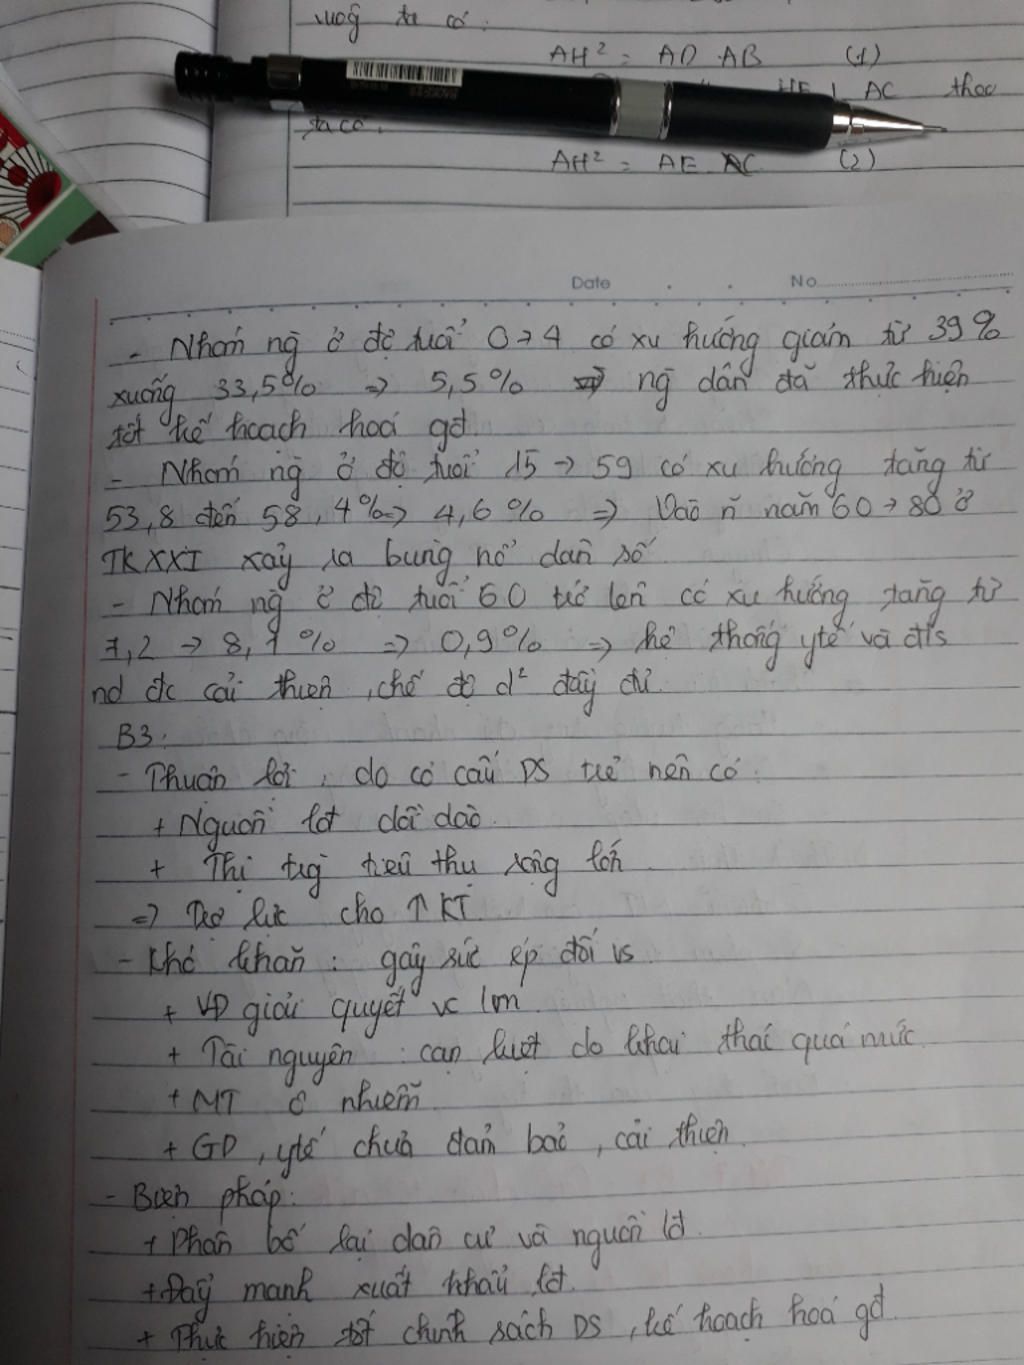 vuông ta có:
AH² = AD . AB (1)
AC theo
ta có:
AH² = AE . AC (2)
Date No
- Nhóm ng ở độ tuổi 0 → 4 có xu hướng giảm từ 39%
xuống 33,5% => 5,5% => ng dân đã thực hiện
tốt kế hoạch hoá gđ.
- Nhóm ng ở độ tuổi 15 → 59 có xu hướng tăng từ
53,8 đến 58,4% => 4,6% => Vào n năm 60 → 80 ở
TK XXI xảy ra bùng nổ dân số
- Nhóm ng ở độ tuổi 60 trở lên có xu hướng tăng từ
7,2 → 8,1% => 0,9% => hệ thống y tế và đ/s
nd đc cải thiện, chế độ d² đầy đủ.
B3:
- Thuận lợi: do cơ cấu DS trẻ nên có:
+ Nguồn lđ dồi dào.
+ Thị trg tiêu thụ rộng lớn.
=> Trợ lực cho ↑ KT
- Khó khăn: gây sức ép đối vs
+ VĐ giải quyết vc lm
+ Tài nguyên: cạn kiệt do khai thác quá mức.
+ MT ô nhiễm.
+ GD, y tế chưa đảm bảo, cải thiện.
- Biện pháp:
+ Phân bố lại dân cư và nguồn lđ.
+ Đẩy mạnh xuất khẩu lđ.
+ Thực hiện tốt chính sách DS, kế hoạch hoá gđ.